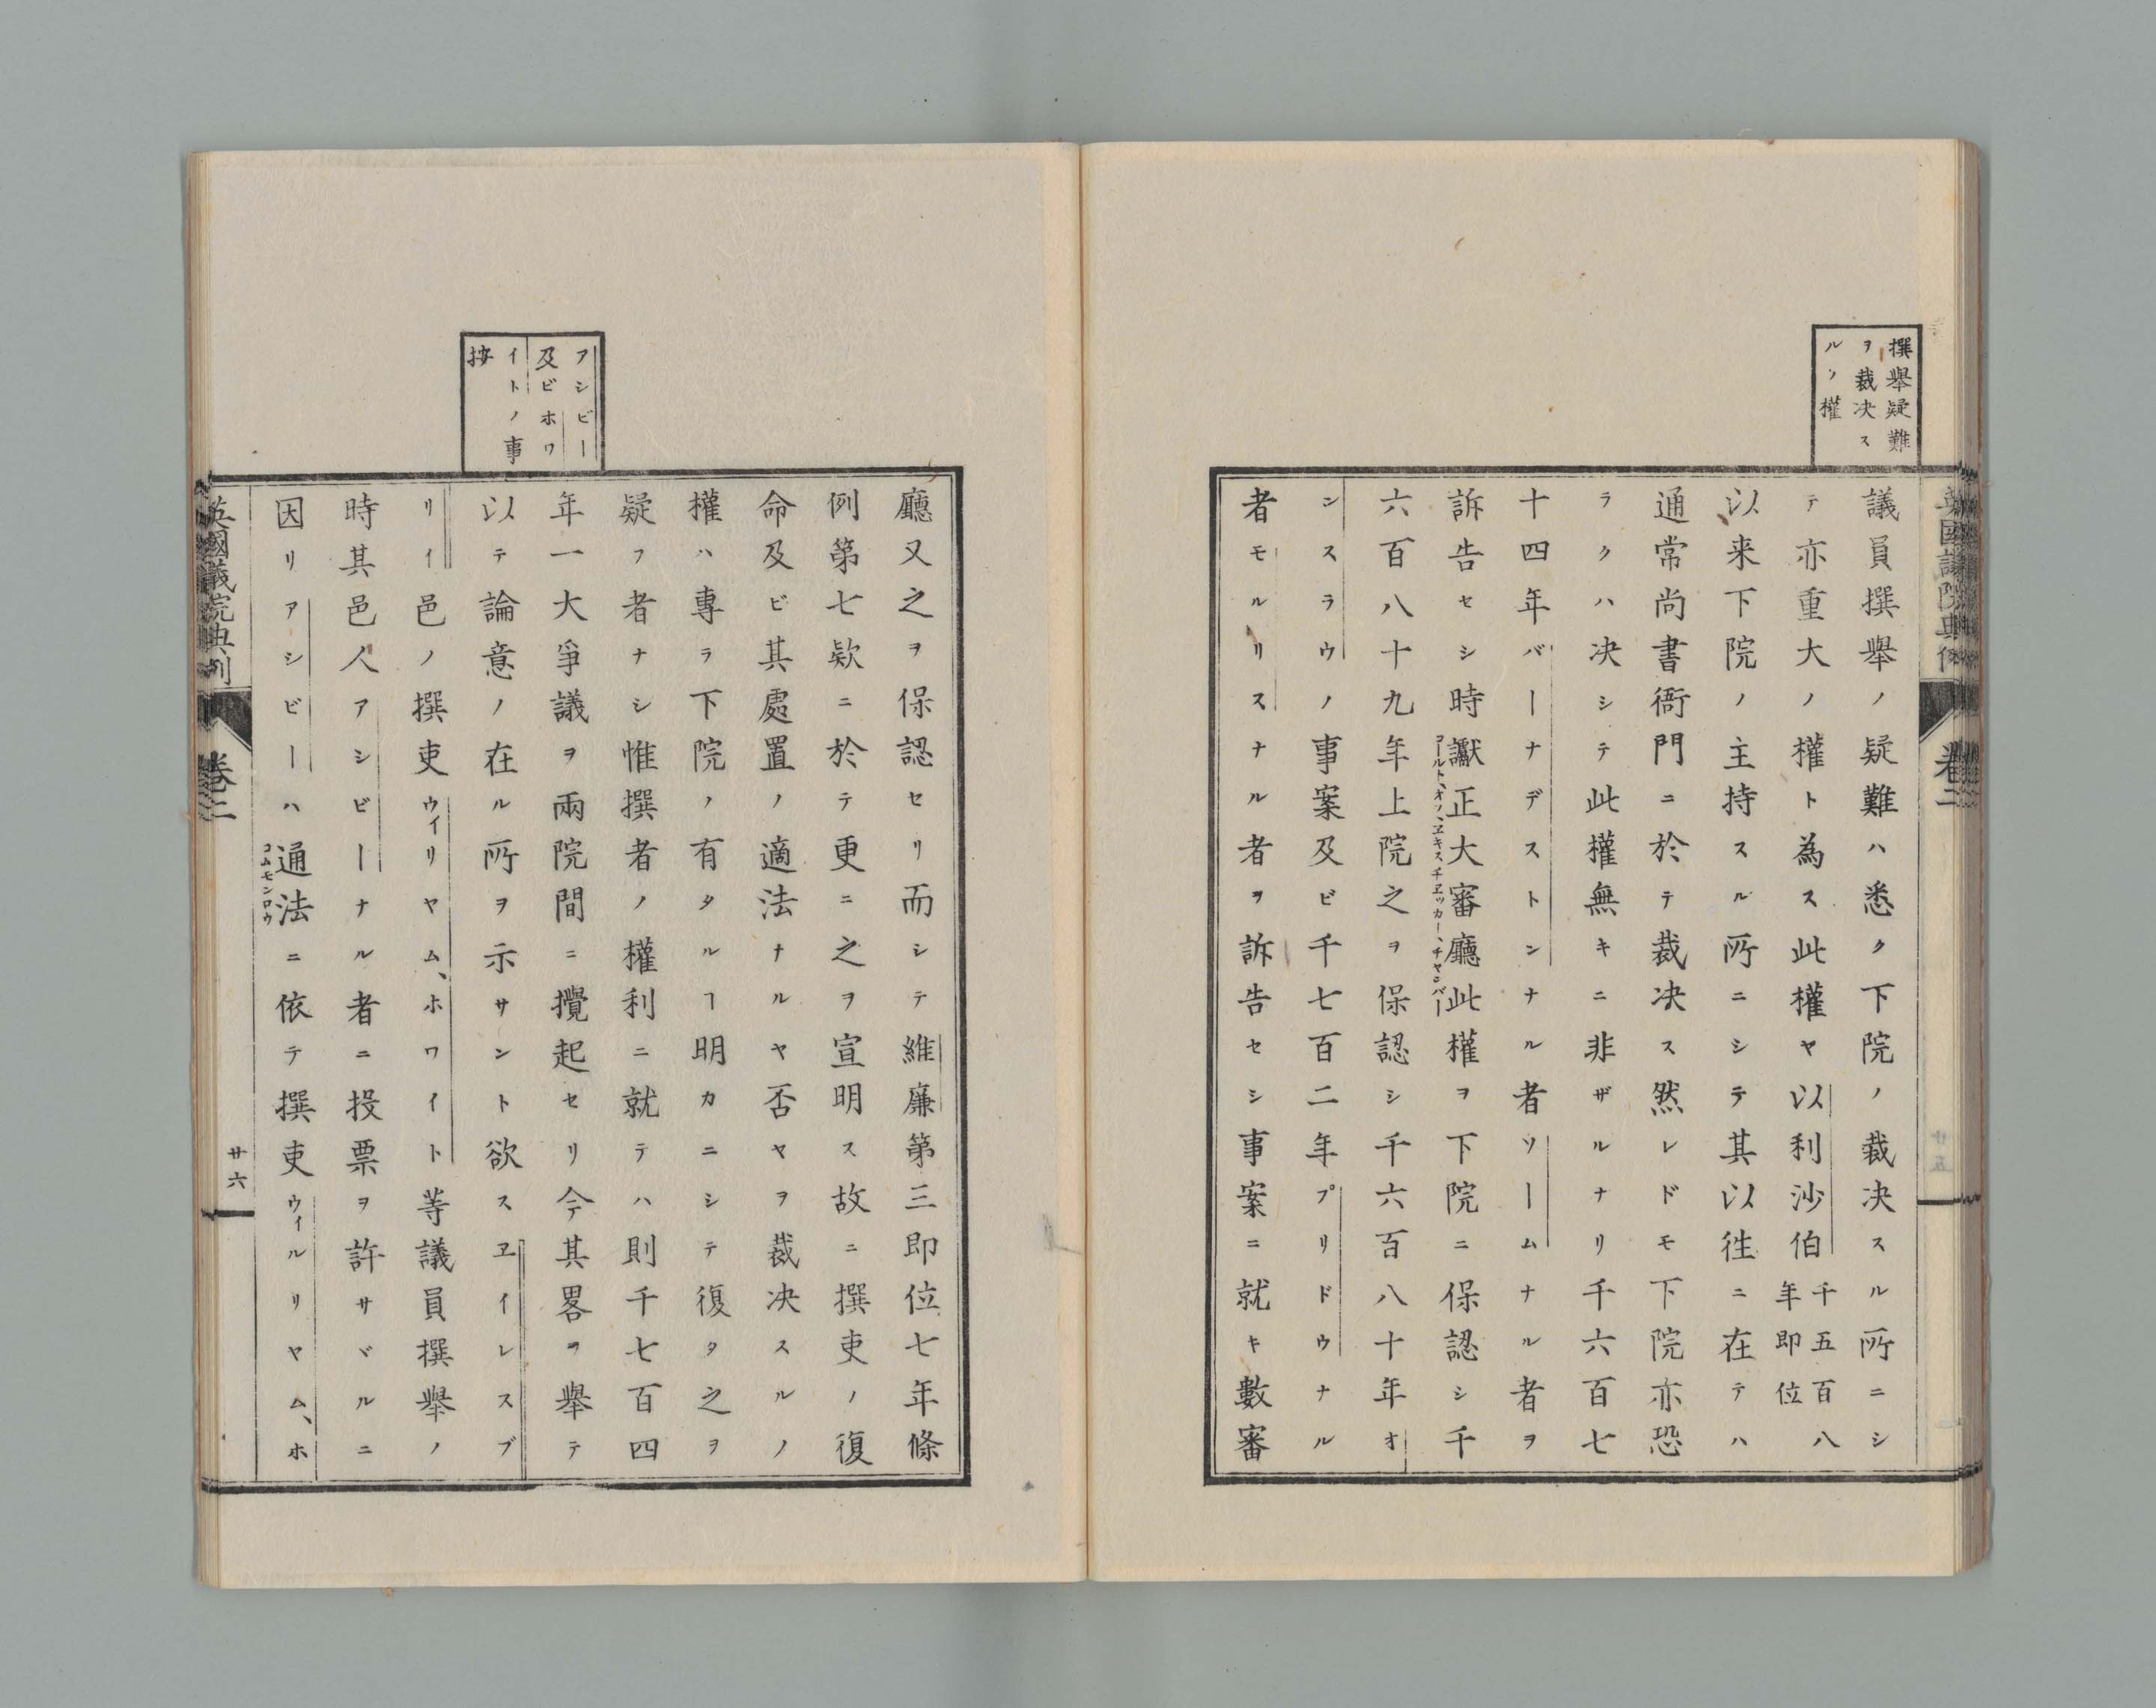 撰舉疑難
ヲ裁决ス
ルノ權
議員撰舉ノ疑難ハ悉ク下院ノ裁决スル所ニシ
テ亦重大ノ權ト為ス此權ヤ以利沙伯千五百八
年即位
以来下院ノ主持スル所ニシテ其以往ニ在テハ
通常尚書衙門ニ於テ裁决ス然レドモ下院亦恐
ラクハ决シテ此權無キニ非ザルナリ千六百七
十四年バーナデストンナル者ソームナル者ヲ
訴告セシ時讞正大審廳此權ヲ下院ニ保認シ千
コールト、オフ、ヱキスチヱッカー、チャンバー
六百八十九年上院之ヲ保認シ千六百八十年オ
ンスラウノ事案及ビ千七百二年プリドウナル
者モルリスナル者ヲ訴告セシ事案ニ就キ數審
アシビー
及ビホワ
イトノ事
按
廳又之ヲ保認セリ而シテ維廉第三即位七年條
例第七欵ニ於テ更ニ之ヲ宣明ス故ニ撰吏ノ復
命及ビ其處置ノ適法ナルヤ否ヤヲ裁决スルノ
權ハ專ラ下院ノ有タルヿ明カニシテ復タ之ヲ
疑フ者ナシ惟撰者ノ權利ニ就テハ則千七百四
年一大爭議ヲ兩院間ニ攪起セリ今其畧ヲ舉テ
以テ論意ノ在ル所ヲ示サント欲スヱイレスブ
リイ邑ノ撰吏ウイリヤム、ホワイト等議員撰舉ノ
時其邑人アシビーナル者ニ投票ヲ許サヾルニ
因リアシビーハ通法ニ依テ撰吏ウィルリヤム、ホ
コムモンロウ
英國義院典列
卷二
廿六